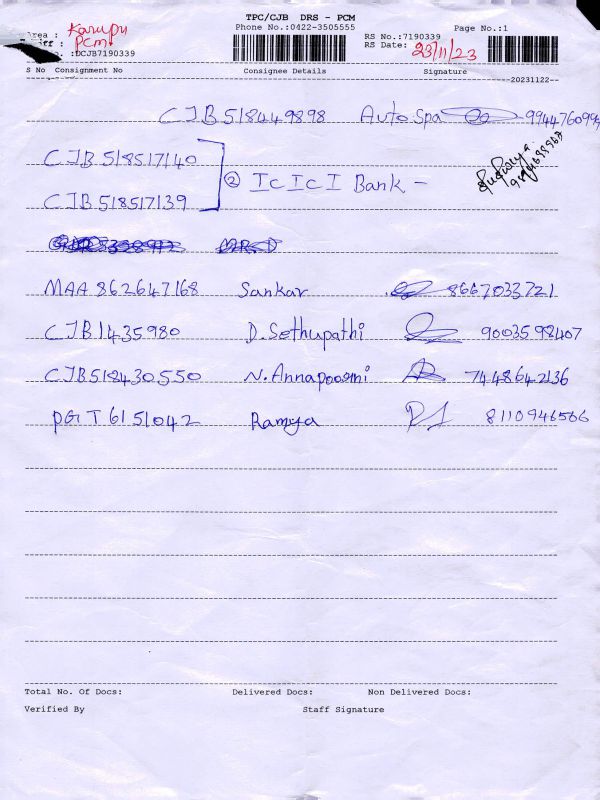 TPC/CJB DRS - PCM
Area : Karupu
Phone No.:0422-3505555
Page No.:1
RS No.:7190339
PCM
RS Date: 23/11/23
:DCJB7190339
S No Consignment No Consignee Details Signature
20231122
CJB 518449898 Auto Spa
CJB 518517140
② ICICI Bank -
CJB 518517139
MAA 862647168 Sankar 8667033721
CJB1435980 D. Sethupathi 9003598407
CJB518430550 N. Annapoorni 7448642136
PGT 6151042 Ramya 8110946566
Total No. Of Docs: Delivered Docs: Non Delivered Docs:
Verified By Staff Signature